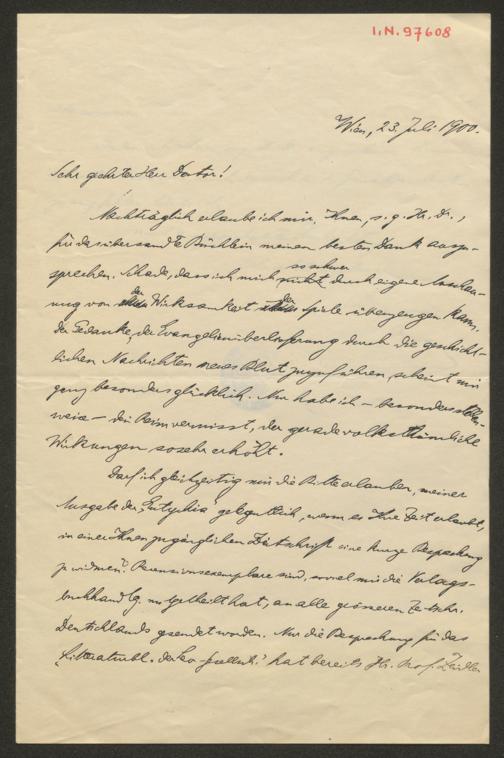 I.N. 97608
Wien, 23. Juli 1900.
Sehr geehrter Herr Doctor!
Nachträglich erlaube ich mir, Ihnen, s. g. Hr. Dr.,
für das übersandte Büchlein meinen besten Dank auszu-
sprechen. Schade, dass ich mich so schwer durch eigene Anschau-
ung von der Wirksamkeit der Spiele überzeugen kann.
Der Gedanke, der Evangelienüberlieferung durch die geschicht-
lichen Nachrichten neues Blut zuzuführen, scheint mir
ganz besonders glücklich. Nur habe ich – besonders stellen-
weise – den Reim vermisst, der gerade volksthümliche
Wirkungen so sehr erhöht.
Darf ich gleichzeitig mir die Bitte erlauben, meiner
Ausgabe der Eutychia gelegentlich, wenn es Ihre Zeit erlaubt,
in einer Ihnen zugänglichen Zeitschrift eine kurze Besprechung
zu widmen? Recensionsexemplare sind, soviel mir die Verlags-
buchhandlg. mitgetheilt hat, an alle grösseren Zeitschr.
Deutschlands gesendet worden. Nur die Besprechung für das
"Litteraturbl. der Leo-Gesellsch." hat bereits Hr. Prof. Zeidler